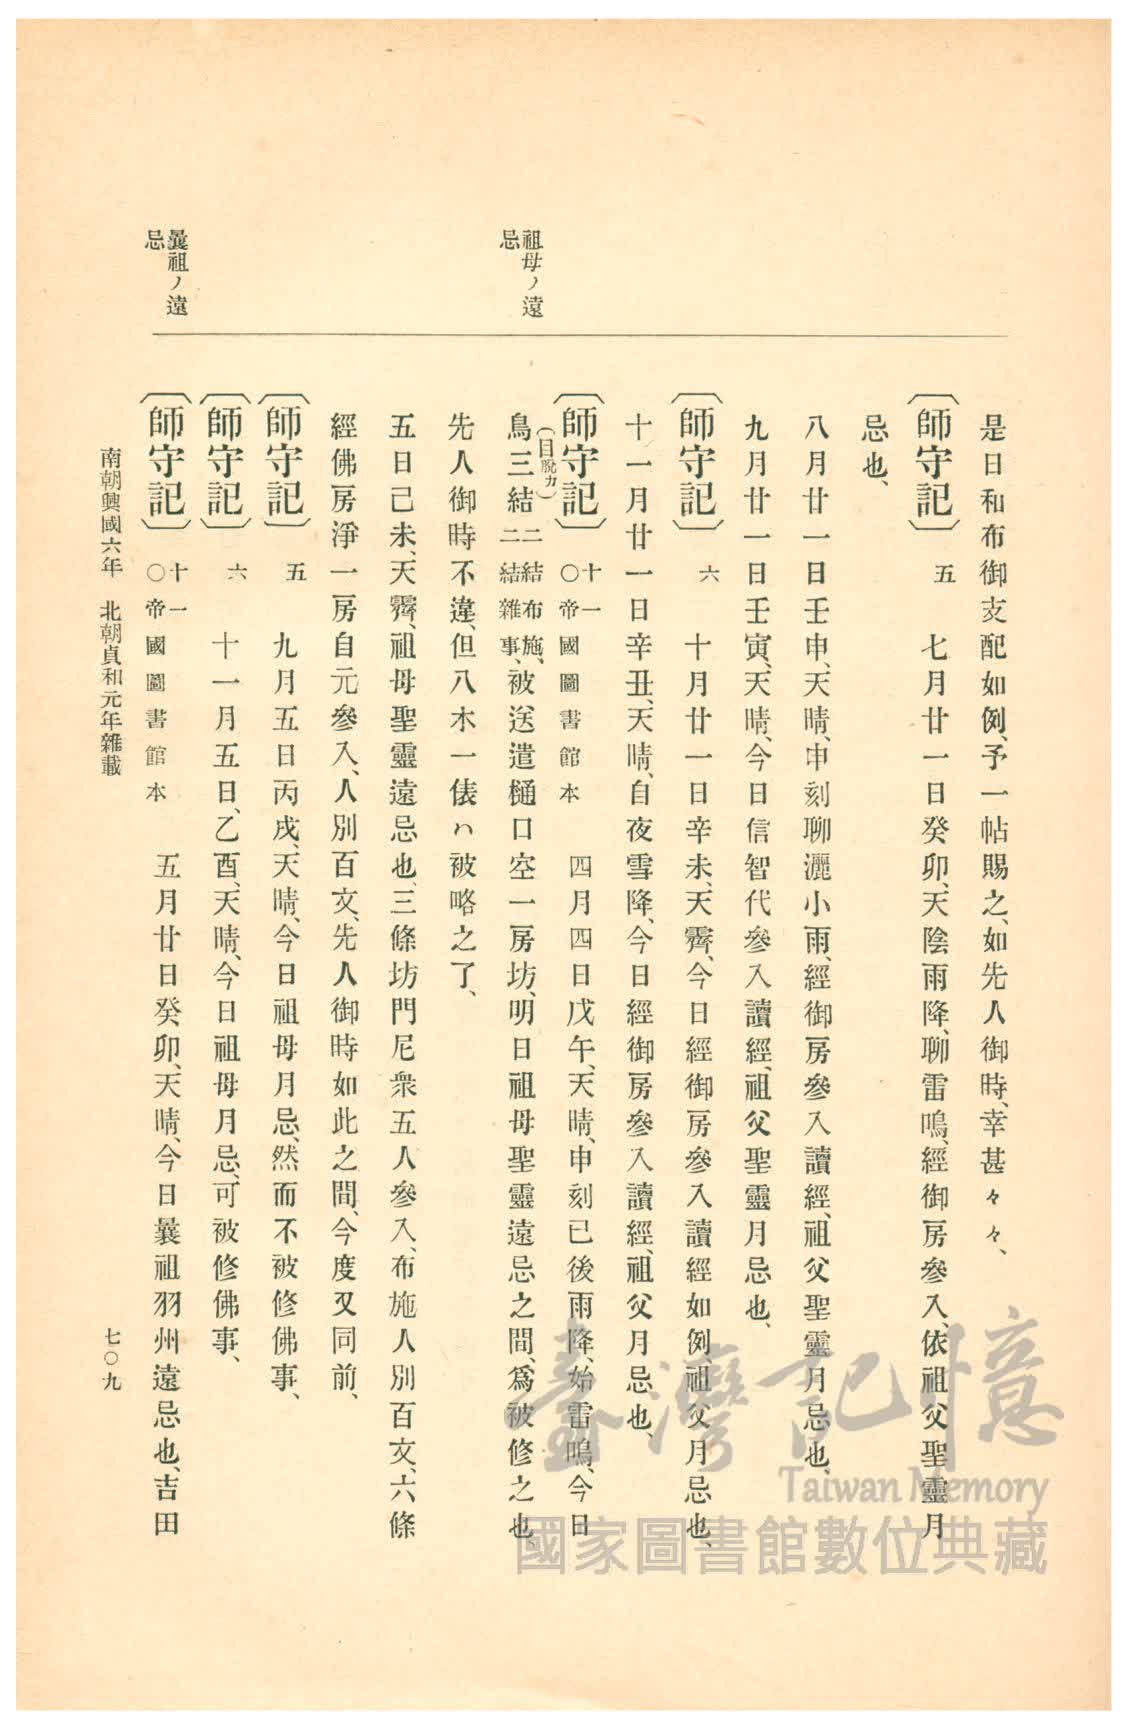 祖母ノ遠
忌
曩祖ノ遠
忌
是日和布御支配如例、予一帖賜之、如先人御時、幸甚々々、
〔師守記〕 五 七月廿一日癸卯、天陰雨降、聊雷鳴、經御房參入、依祖父聖靈月
忌也、
八月廿一日壬申、天晴、申刻聊灑小雨、經御房參入讀經、祖父聖靈月忌也、
九月廿一日壬寅、天晴、今日信智代參入讀經、祖父聖靈月忌也、
〔師守記〕 六 十月廿一日辛未、天霽、今日經御房參入讀經如例、祖父月忌也、
十一月廿一日辛丑、天晴、自夜雪降、今日經御房參入讀經、祖父月忌也、
〔師守記〕 十一 ○帝國圖書館本 四月四日戊午、天晴、申刻已後雨降、始雷鳴、今日
(目脫カ)
鳥三結 二結布施、二結雜事、被送遣樋口空一房坊、明日祖母聖靈遠忌之間、爲被修之也、
先人御時不違、但八木一俵ハ被略之了、
五日己未、天霽、祖母聖靈遠忌也、三條坊門尼衆五人參入、布施人別百文、六條
經佛房淨一房自元參入、人別百文、先人御時如此之間、今度又同前、
〔師守記〕 五 九月五日丙戌、天晴、今日祖母月忌、然而不被修佛事、
〔師守記〕 六 十一月五日、乙酉、天晴、今日祖母月忌、可被修佛事、
〔師守記〕 十一 ○帝國圖書館本 五月廿日癸卯、天晴、今日曩祖羽州遠忌也、吉田
南朝興國六年 北朝貞和元年雜載
七〇九
臺灣記憶
Taiwan Memory
國家圖書館數位典藏